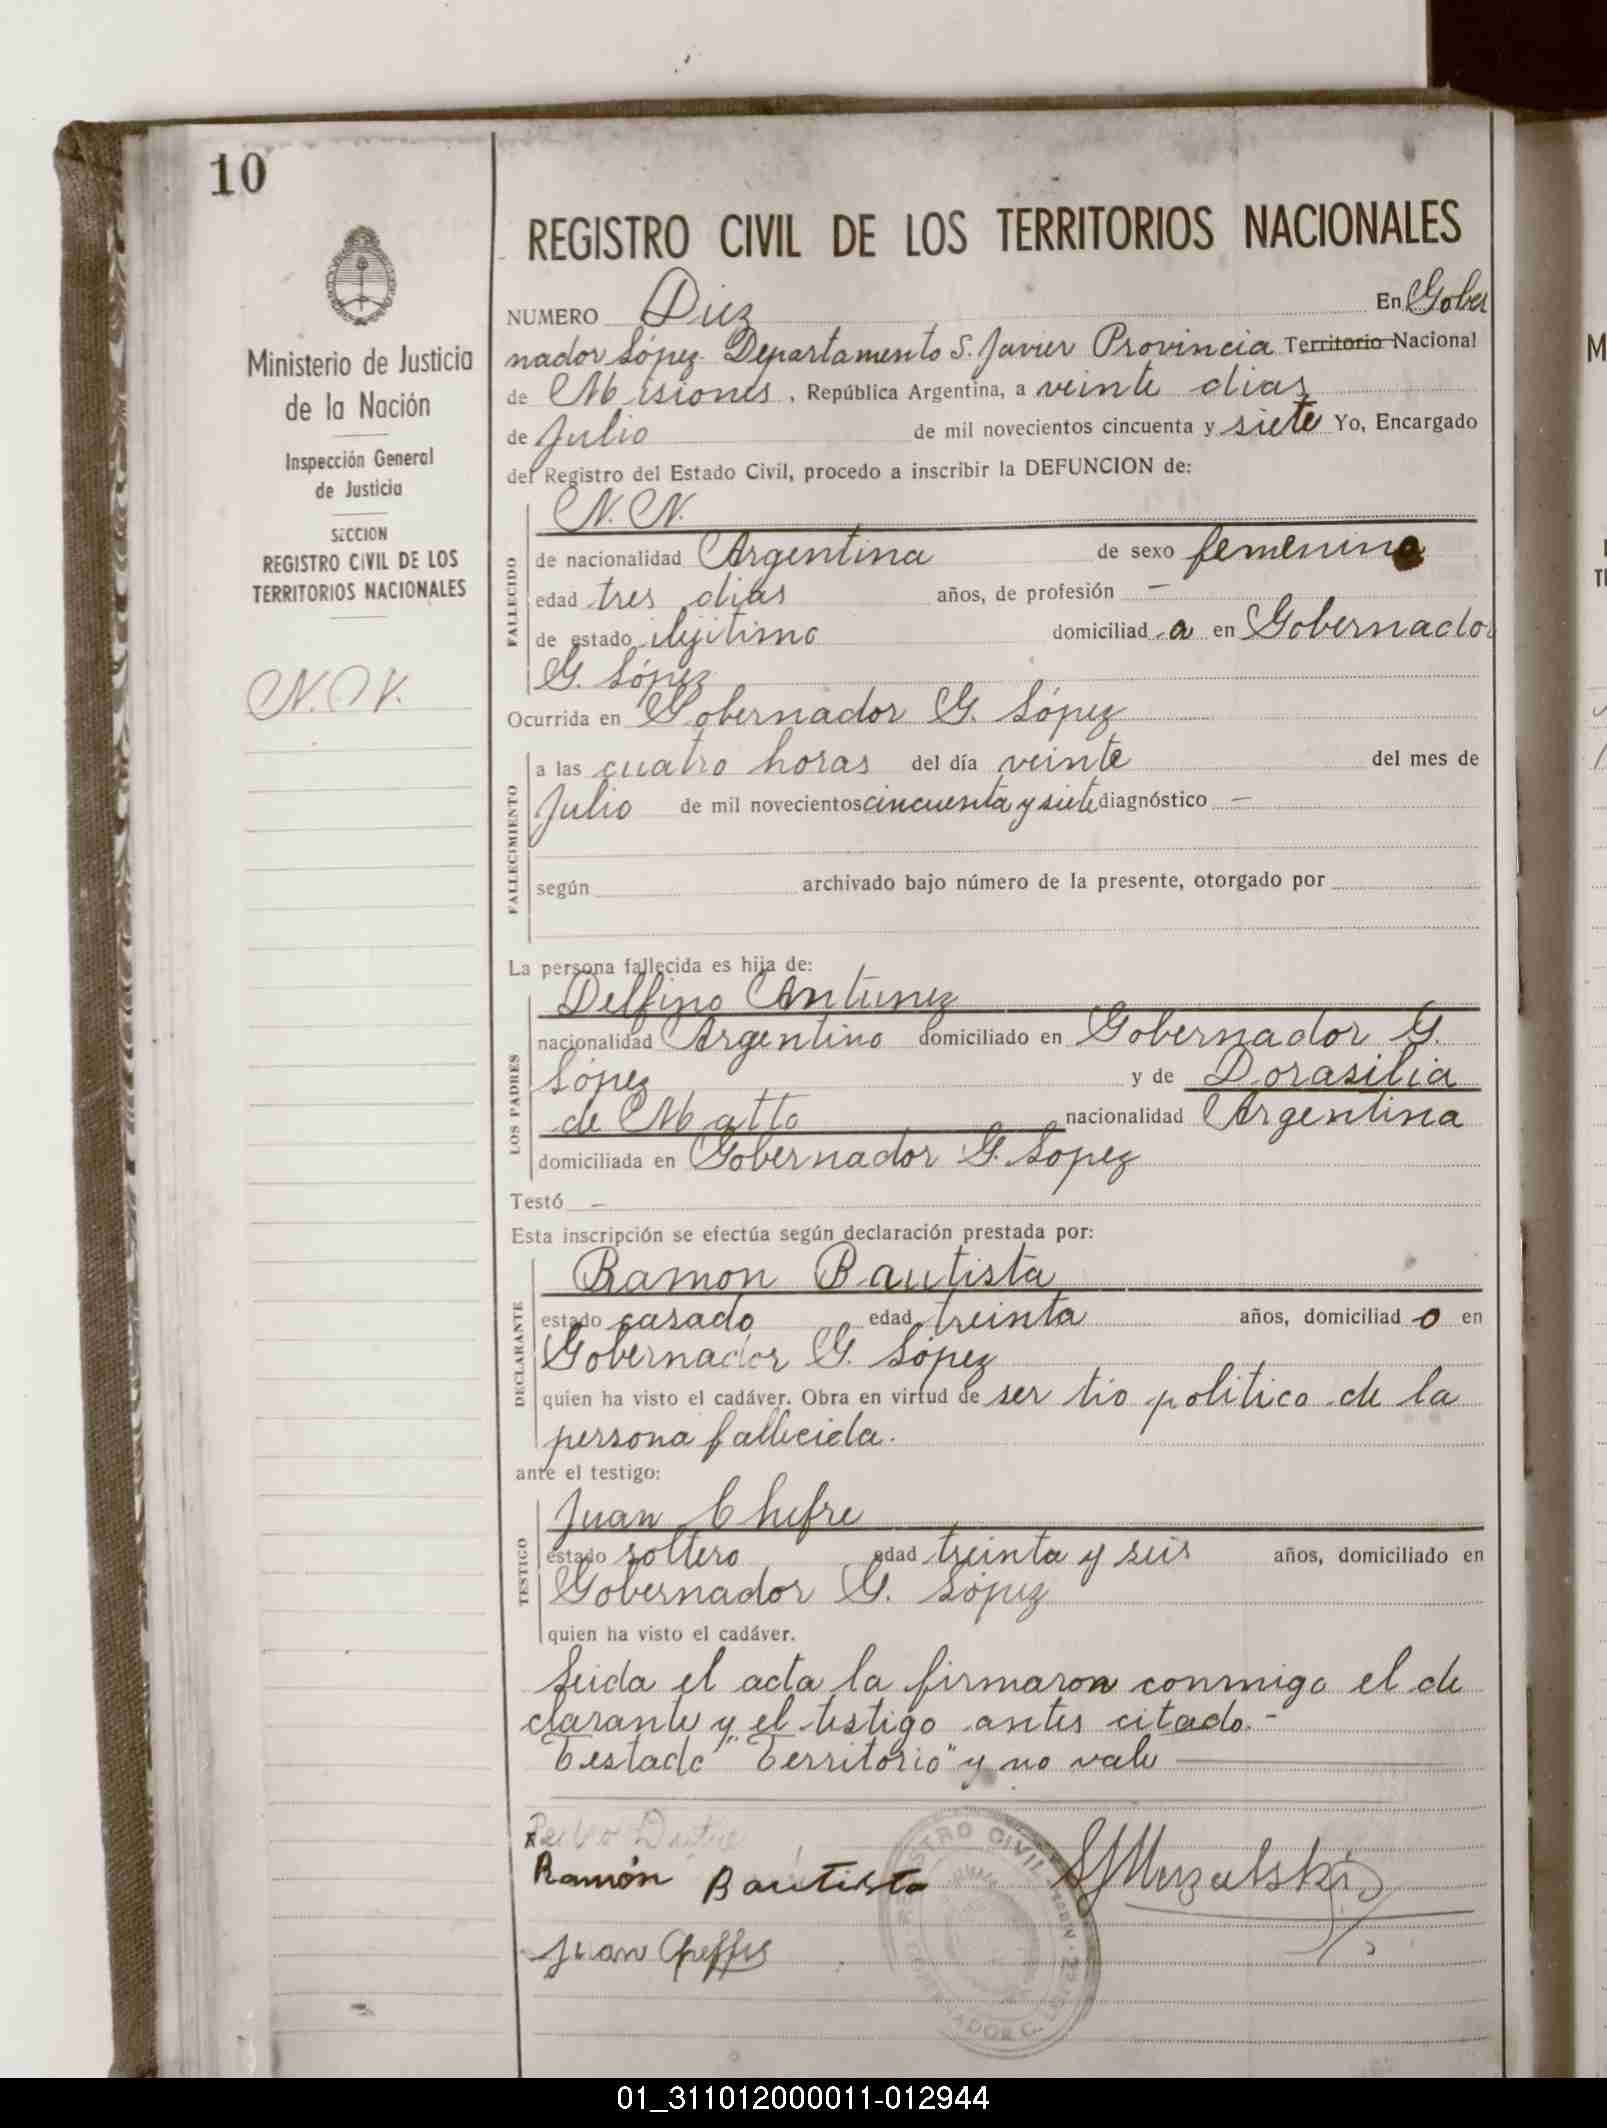 10
REGISTRO CIVIL DE LOS TERRITORIOS NACIONALES
Ministerio de Justicia
de la Nación
Inspección General
de Justicia
SECCION
REGISTRO CIVIL DE LOS
TERRITORIOS NACIONALES
N. N.
NUMERO Diez En Gober
nador López Departamento S. Javier Provincia Territorio Nacional
de Misiones, República Argentina, a veinte dias
de Julio de mil novecientos cincuenta y siete Yo, Encargado
del Registro del Estado Civil, procedo a inscribir la DEFUNCION de:
FALLECIDO
N. N.
de nacionalidad Argentina de sexo femenino
edad tres dias años, de profesión —
de estado ilejitimo domiciliad a en Gobernador
G. López
Ocurrida en Gobernador G. López
FALLECIMIENTO
a las cuatro horas del día veinte del mes de
Julio de mil novecientos cincuenta y siete diagnóstico —
según archivado bajo número de la presente, otorgado por
La persona fallecida es hija de:
LOS PADRES
Delfino Antunez
nacionalidad Argentino domiciliado en Gobernador G.
López y de Dorasilia
de Matto nacionalidad Argentina
domiciliada en Gobernador G. Lopez
Testó —
Esta inscripción se efectúa según declaración prestada por:
DECLARANTE
Ramon Bautista
estado casado edad treinta años, domiciliad o en
Gobernador G. López
quien ha visto el cadáver. Obra en virtud de ser tio politico de la
persona fallecida.
ante el testigo:
TESTIGO
Juan Chefre
estado soltero edad treinta y seis años, domiciliado en
Gobernador G. López
quien ha visto el cadáver.
Leida el acta la firmaron conmigo el de
clarante y el testigo antes citado.-
Testado "Territorio" y no vale
Ramón Bautista
Juan
REGISTRO CIVIL
01_311012000011-012944